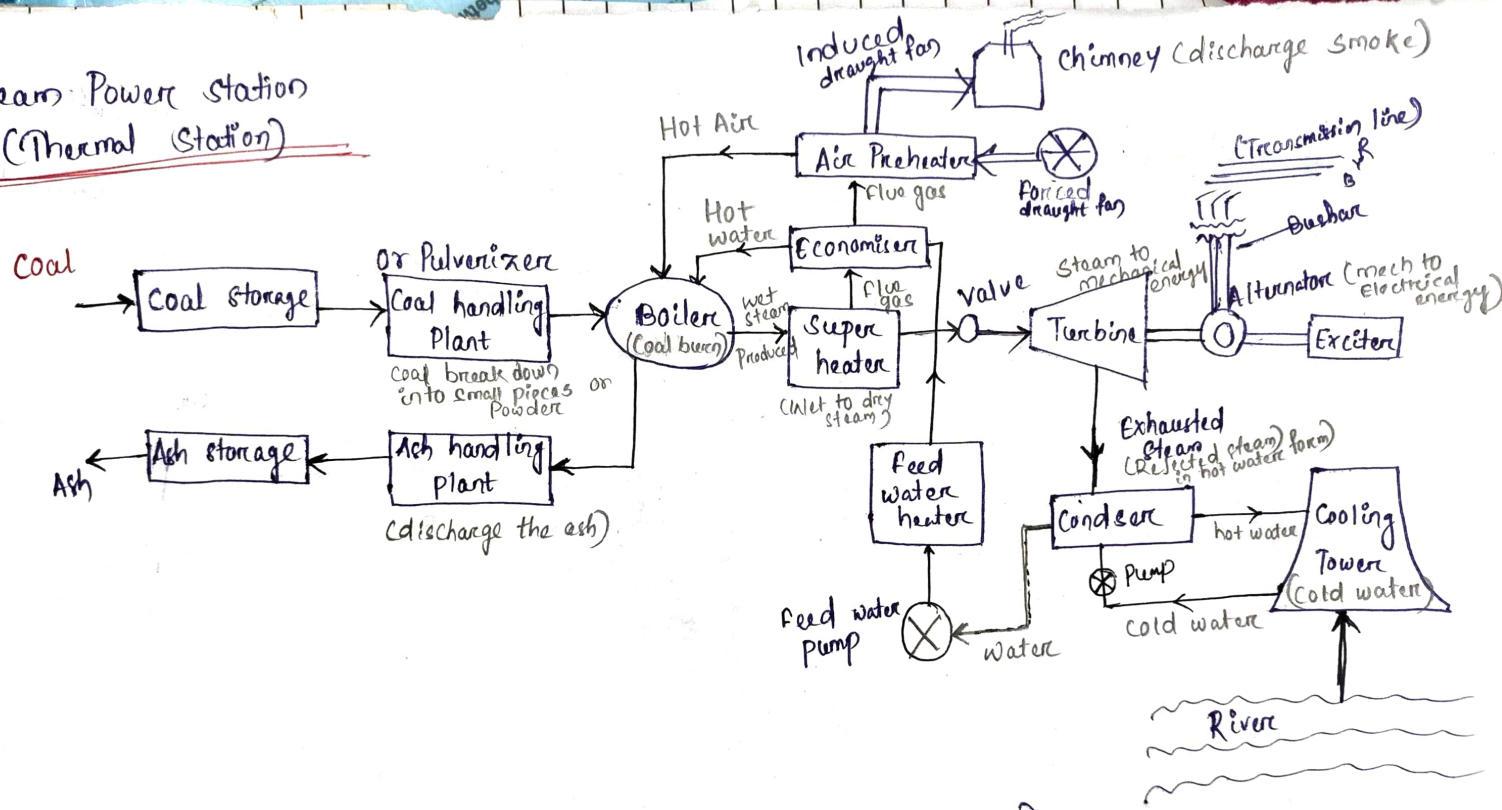 eam Power station
(Thermal Station)
Induced
draught fan
Chimney (discharge smoke)
Hot Air
Air Preheater
Forced
draught fan
(Transmission line)
R
Y
B
Busbar
flue gas
Hot
water
Economiser
Coal
Coal storage
or Pulverizer
Coal handling
Plant
Coal break down
into small pieces or
Powder
Boiler
(Coal burn)
wet
steam
Produced
flue
gas
Super
heater
(Wet to dry
steam)
valve
Steam to
mechanical
energy
Turbine
Alternator (mech to
Electrical
energy)
Exciter
Ash
Ash storage
Ash handling
plant
(discharge the ash)
Feed
water
heater
Exhausted
Steam
(Rejected steam)
in hot water form)
Condser
hot water
Cooling
Tower
(cold water)
Pump
cold water
Feed water
pump
water
River